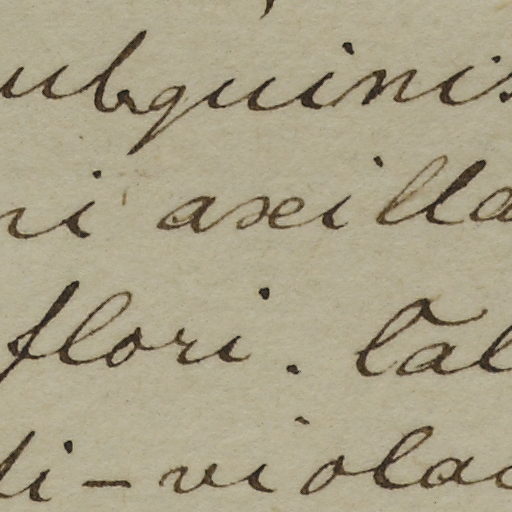 ubquinis
ni axilla
flori. Cal
di-violac